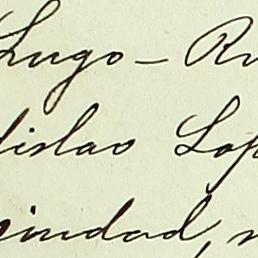 Lugo - Ru
dislao Lop
rindad, n